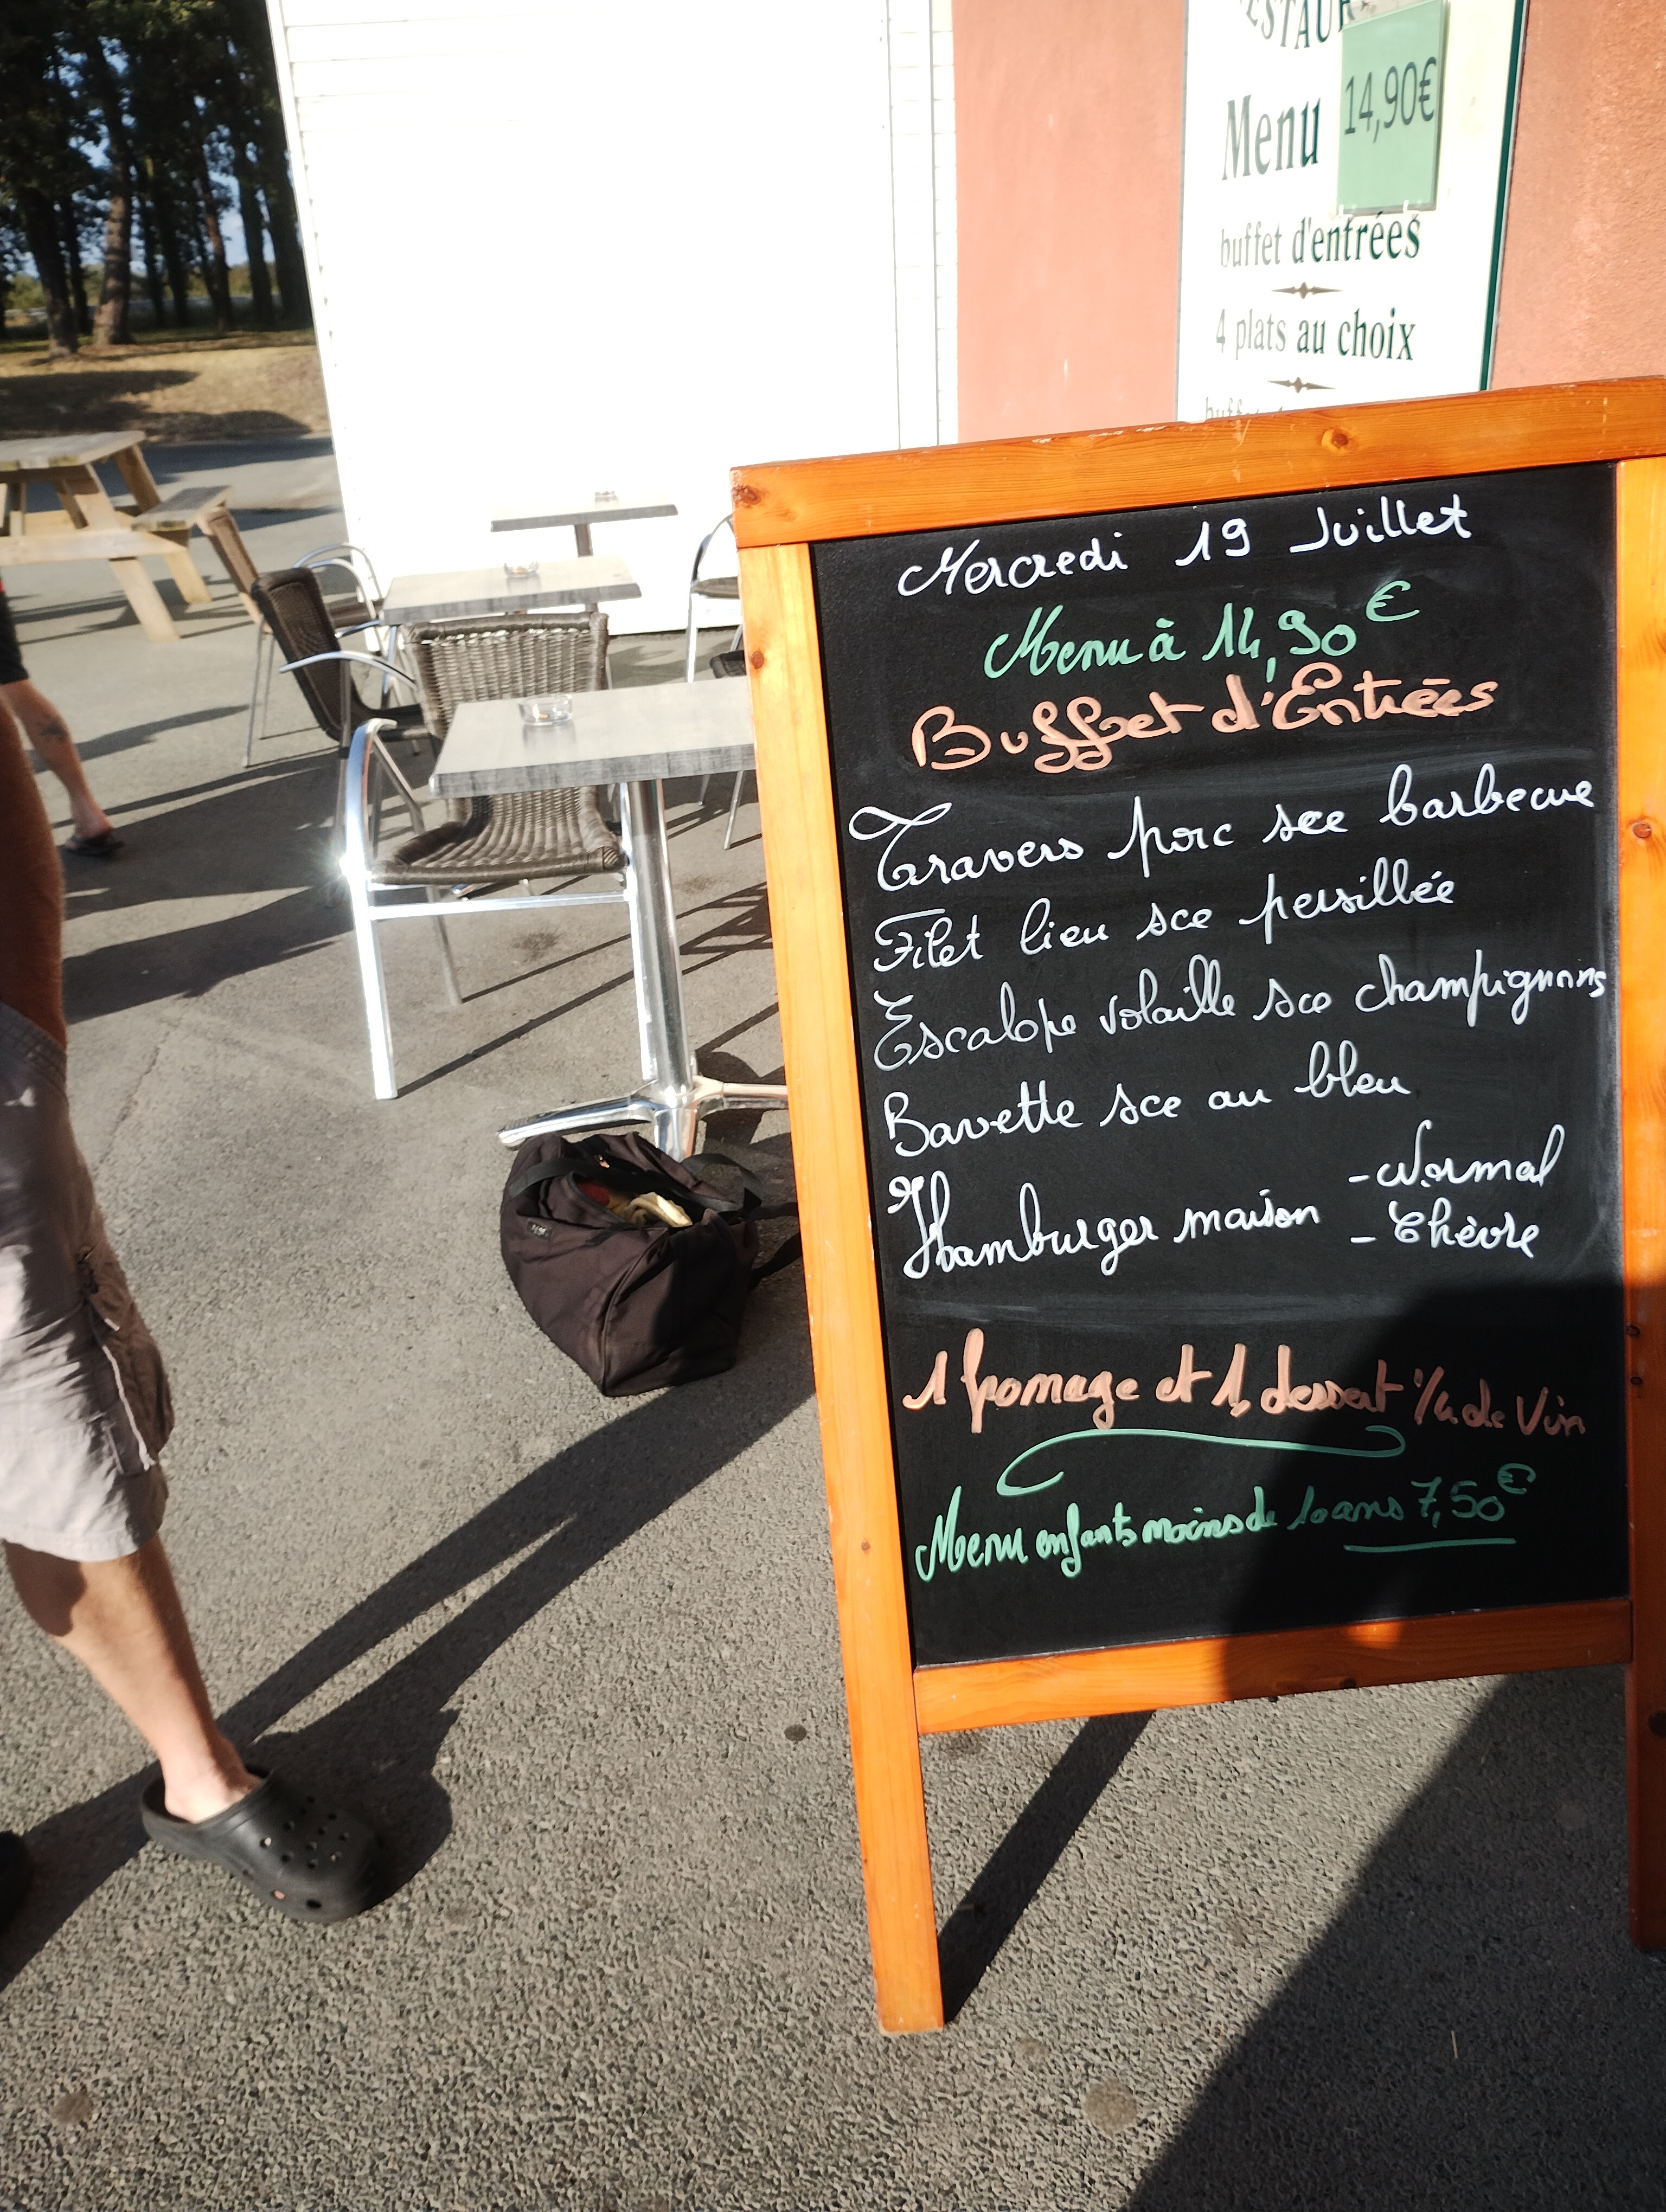 RESTAUR
Menu 14,90€
buffet d'entrées
4 plats au choix
Mercredi 19 Juillet
Menu à 14,90€
Buffet d'Entrées
Travers porc sce barbecue
Filet lieu sce persillée
Escalope volaille sce champignons
Bavette sce au bleu
Hamburger maison - Normal
- Chèvre
1 fromage et 1 dessert 1/4 de Vin
Menu enfants moins de 10 ans 7,50€